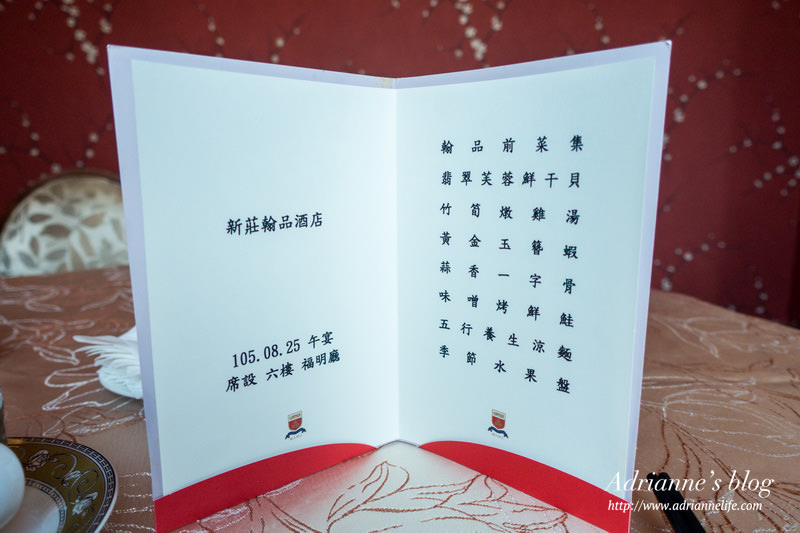 新莊翰品酒店
105.08.25 午宴
席設 六樓 福明廳
翰品前菜集
翡翠芙蓉鮮干貝
竹筍燉雞湯
黃金玉簪蝦
蒜香一字骨
味噌烤鮮鮭
五行養生涼麵
季節水果盤
Adrianne's blog
http://www.adriannelife.com